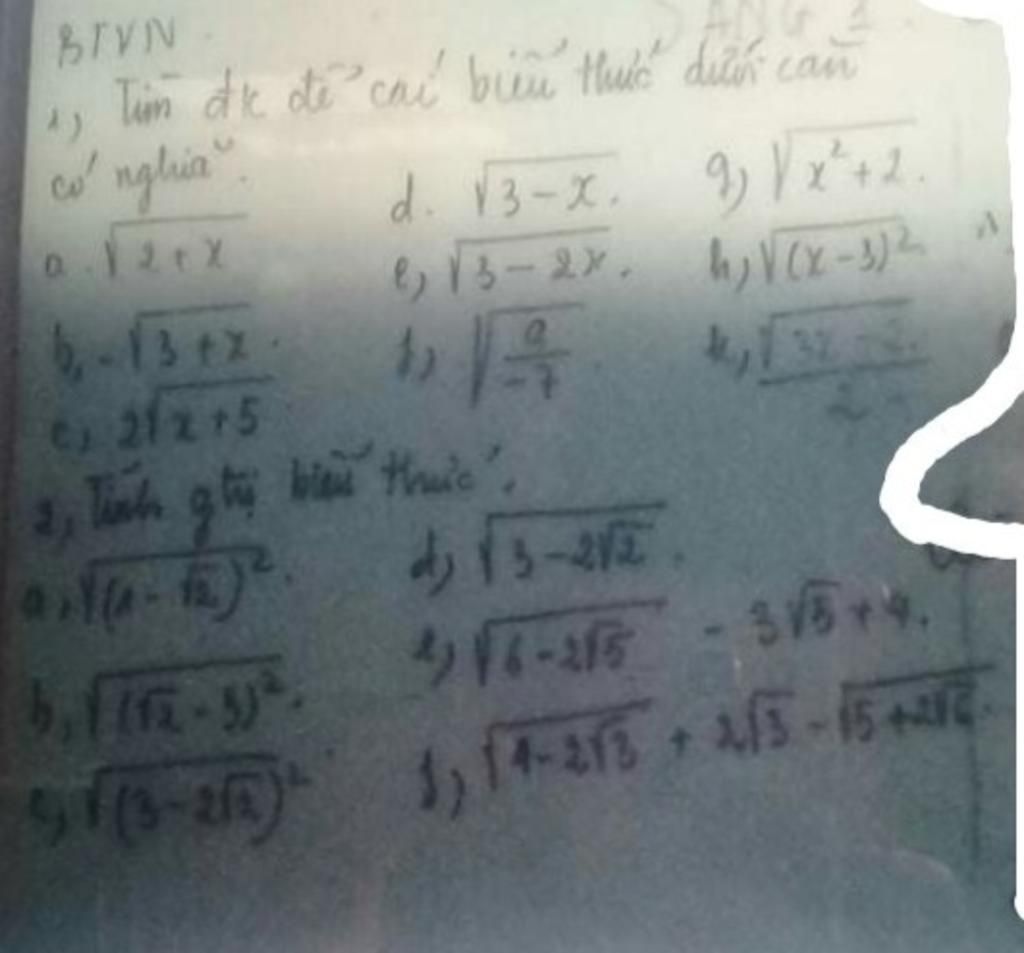 BTVN.
1, Tìm đk để các biểu thức dưới căn
có nghĩa.
a. √(2+x)
d. √(3-x).
g, √(x²+2).
b, -√(3+x).
e, √(3-2x).
h, √((x-3)²)
c, 2√(x+5)
f, √(a/-7)
k, √(3x-2)/2
2, Tính gtrị biểu thức.
a, √((1-√2)²).
d, √(3-2√2).
b, √((√2-3)²).
e, √(6-2√5) - 3√5+4.
c, √((3-2√2)²)
f, √(4-2√3) + 2√3-√(5+2√6).